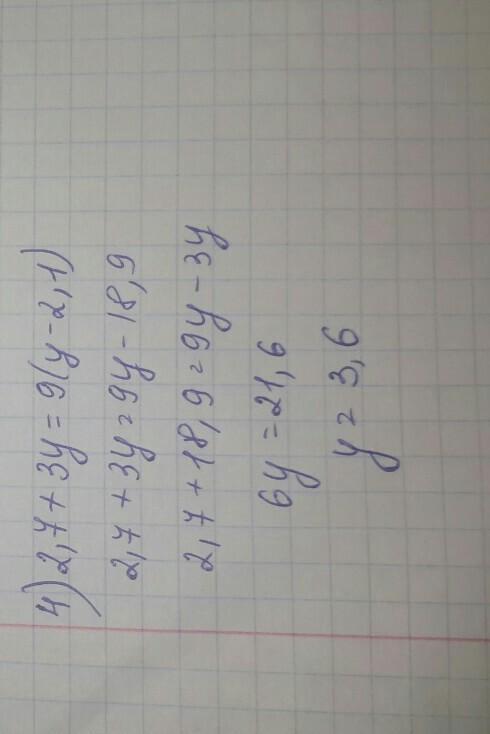 4) 2,7 + 3y = 9(y - 2,1)
2,7 + 3y = 9y - 18,9
2,7 + 18,9 = 9y - 3y
6y = 21,6
y = 3,6